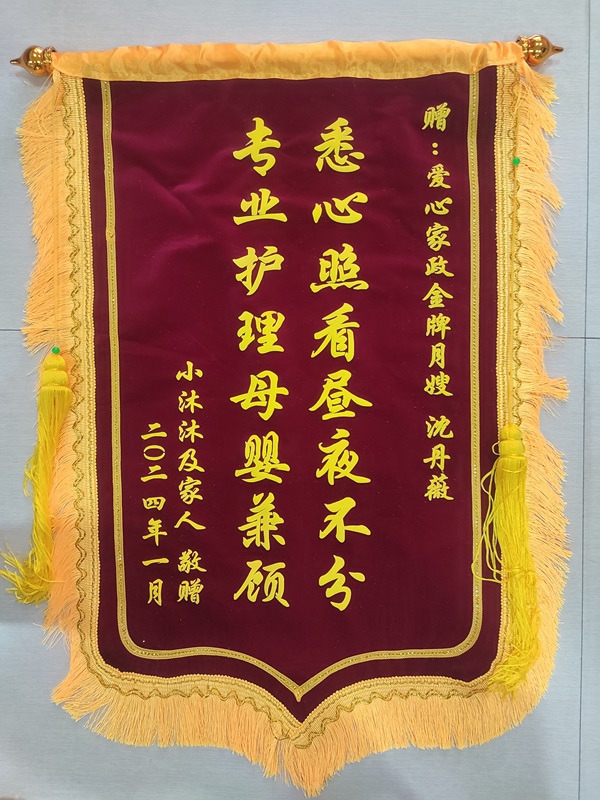 赠：爱心家政金牌月嫂 沈丹薇
悉心照看昼夜不分
专业护理母婴兼顾
小沐沐及家人 敬赠
二〇二四年一月